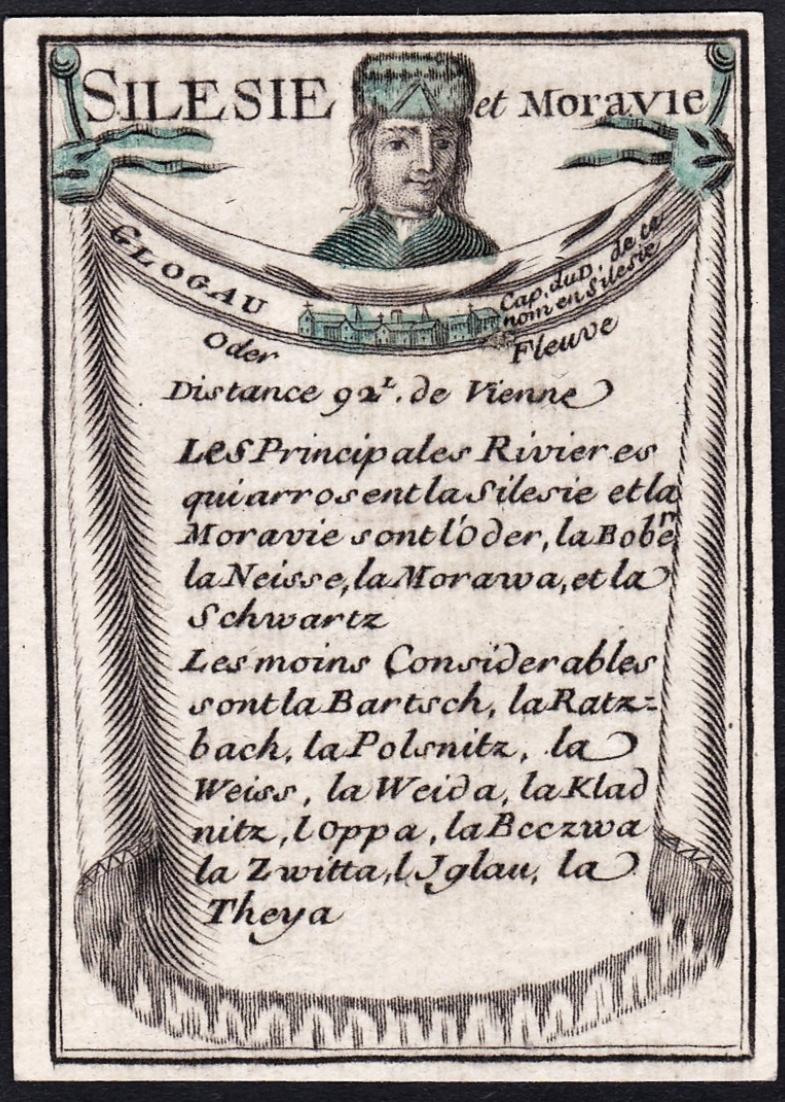 SILESIE et Moravie
GLOGAU
Cap. du D. de ce
nom en Silesie
Oder
Fleuve
Distance 92 L. de Vienne
Les Principales Rivieres
qui arrosent la Silesie et la
Moravie sont l'Oder, la Bobër
la Neisse, la Morawa, et la
Schwartz
Les moins Considerables
sont la Bartsch, la Ratz=
bach, la Polsnitz, la
Weiss, la Weida, la Klad
nitz, l Oppa, la Beczwa
la Zwitta, l Jglau, la
Theya